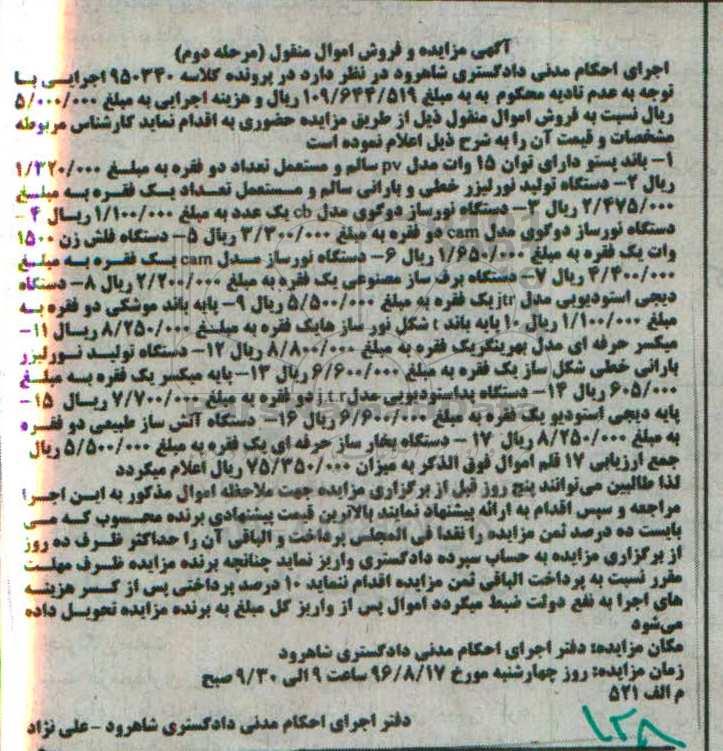 آگهی مزایده و فروش اموال منقول (مرحله دوم)
اجرای احکام مدنی دادگستری شاهرود در نظر دارد در پرونده کلاسه ۹۵۰۳۴۰ اجرایی با
توجه به عدم تادیه محکوم به به مبلغ ۱۰۹/۶۴۴/۵۱۹ ریال و هزینه اجرایی به مبلغ ۵/۰۰۰/۰۰۰
ریال نسبت به فروش اموال منقول ذیل از طریق مزایده حضوری به اقدام نماید کارشناس مربوطه
مشخصات و قیمت آن را به شرح ذیل اعلام نموده است
۱– باند پستو دارای توان ۱۵ وات مدل pv سالم و مستعمل تعداد دو فقره به مبلغ ۱/۳۲۰/۰۰۰
ریال ۲– دستگاه تولید نورلیزر خطی و بارانی سالم و مستعمل تعداد یک فقره به مبلغ
۲/۴۷۵/۰۰۰ ریال ۳– دستگاه نورساز دوگوی مدل cb یک عدد به مبلغ ۱/۱۰۰/۰۰۰ ریال ۴–
دستگاه نورساز دوگوی مدل cam دو فقره به مبلغ ۳/۳۰۰/۰۰۰ ریال ۵– دستگاه فلش زن ۱۵۰۰
وات یک فقره به مبلغ ۱/۶۵۰/۰۰۰ ریال ۶– دستگاه نورساز مدل cam یک فقره به مبلغ
۴/۴۰۰/۰۰۰ ریال ۷– دستگاه برف ساز مصنوعی یک فقره به مبلغ ۲/۲۰۰/۰۰۰ ریال ۸– دستگاه
دیجی استودیویی مدل jtr یک فقره به مبلغ ۵/۵۰۰/۰۰۰ ریال ۹– پایه باند موشکی دو فقره به
مبلغ ۱/۱۰۰/۰۰۰ ریال ۱۰ پایه باند t شکل نور ساز هایک فقره به مبلغ ۸/۲۵۰/۰۰۰ ریال ۱۱–
میکسر حرفه ای مدل بهرینگریک فقره به مبلغ ۸/۸۰۰/۰۰۰ ریال ۱۲– دستگاه تولید نورلیزر
بارانی خطی شکل ساز یک فقره به مبلغ ۶/۶۰۰/۰۰۰ ریال ۱۳– پایه میکسر یک فقره به مبلغ
۶۰۵/۰۰۰ ریال ۱۴– دستگاه پداستودیویی مدل j.t.r دو فقره به مبلغ ۷/۷۰۰/۰۰۰ ریال ۱۵–
پایه دیجی استودیو یک فقره به مبلغ ۶/۶۰۰/۰۰۰ ریال ۱۶– دستگاه آتش ساز طبیعی دو فقره
به مبلغ ۸/۲۵۰/۰۰۰ ریال ۱۷– دستگاه بخار ساز حرفه ای یک فقره به مبلغ ۵/۵۰۰/۰۰۰ ریال
جمع ارزیابی ۱۷ قلم اموال فوق الذکر به میزان ۷۵/۳۵۰/۰۰۰ ریال اعلام میگردد
لذا طالبین می‌توانند پنج روز قبل از برگزاری مزایده جهت ملاحظه اموال مذکور به این اجرا
مراجعه و سپس اقدام به ارائه پیشنهاد نمایند بالاترین قیمت پیشنهادی برنده محسوب که می
بایست ده درصد ثمن مزایده را نقدا فی المجلس پرداخت و الباقی آن را حداکثر ظرف ده روز
از برگزاری مزایده به حساب سپرده دادگستری واریز نماید چنانچه برنده مزایده ظرف مهلت
مقرر نسبت به پرداخت الباقی ثمن مزایده اقدام ننماید ۱۰ درصد پرداختی پس از کسر هزینه
های اجرا به نفع دولت ضبط میگردد اموال پس از واریز کل مبلغ به برنده مزایده تحویل داده
می‌شود
مکان مزایده: دفتر اجرای احکام مدنی دادگستری شاهرود
زمان مزایده: روز چهارشنبه مورخ ۹۶/۸/۱۷ ساعت ۹ الی ۹/۳۰ صبح
م الف ۵۲۱
دفتر اجرای احکام مدنی دادگستری شاهرود – علی نژاد
۱۲۸